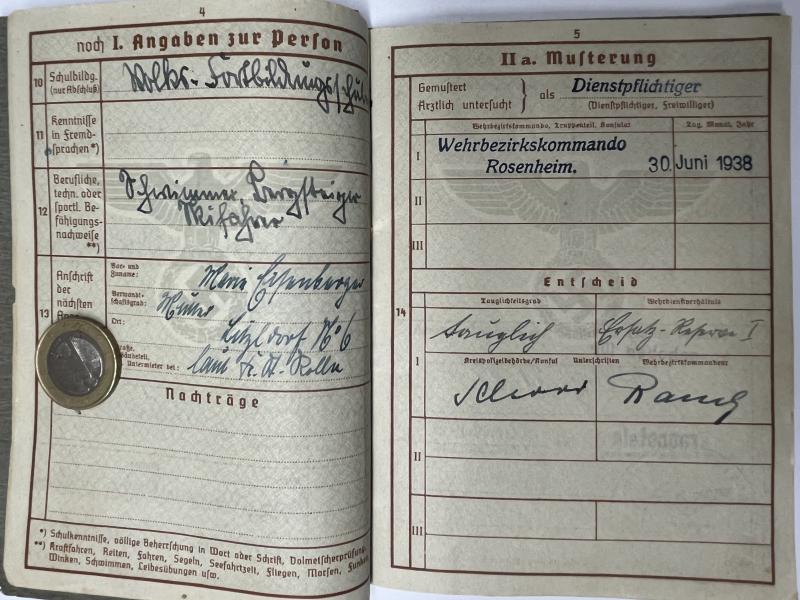 4
noch I. Angaben zur Person
10 Schulbildg. (nur Abschluß)
Volks- Fortbildungsschule
11 Kenntnisse in Fremdsprachen*)
12 Berufliche, techn. oder sportl. Befähigungsnachweise **)
Schwimmer, Bergsteiger
Skifahrer
13 Anschrift der nächsten
Vor- und Zuname:
Maria Eisenberger
Verwandtschaftsgrad:
Mutter
Ort:
Litzldorf No 6
Untermieter bei:
Nachträge
*) Schulkenntnisse, völlige Beherrschung in Wort oder Schrift, Dolmetscherprüfung,
**) Kraftfahren, Reiten, Fahren, Segeln, Seefahrtzeit, Fliegen, Morsen,
Winken, Schwimmen, Leibesübungen usw.
5
IIa. Musterung
Gemustert
Ärztlich untersucht } als Dienstpflichtiger
(Dienstpflichtiger, Freiwilliger)
Wehrbezirkskommando, Truppenteil, Konsulat
Tag, Monat, Jahr
I
Wehrbezirkskommando
Rosenheim. 30. Juni 1938
II
III
Entscheid
14
Tauglichkeitsgrad
Wehrdienstverhältnis
tauglich Ersatz-Reserve I
I
Kreispolizeibehörde/Konsul Unterschriften Wehrbezirkskommandeur
II
III